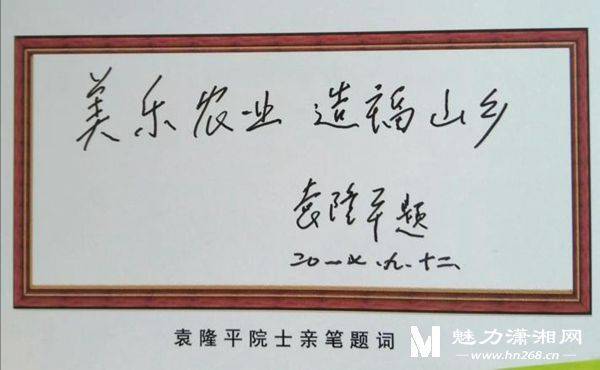 美乐农业 造福山乡
袁隆平题
二〇一七.九.十二
袁隆平院士亲笔题词
M 魅力潇湘网
www.hn268.cn